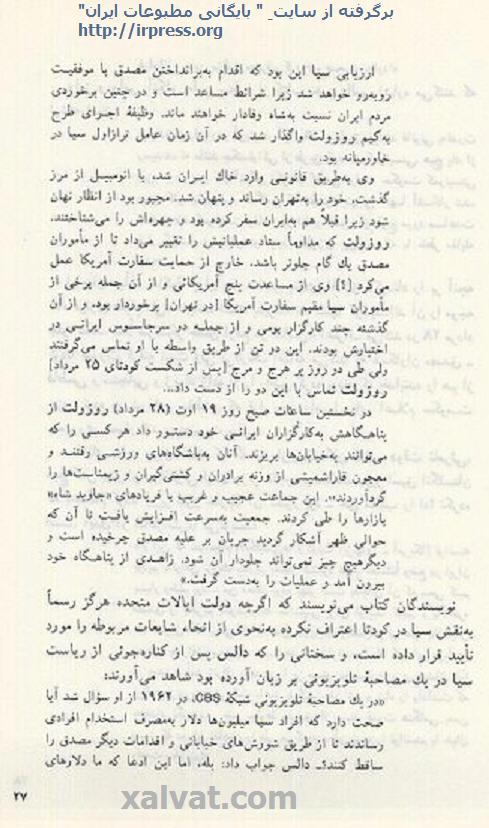 برگرفته از سایت_ " بایگانی مطبوعات ایران"
http://irpress.org
ارزیابی سیا این بود که اقدام به‌برانداختن مصدق با موفقیت
روبه‌رو خواهد شد زیرا شرائط مساعد است و در چنین برخوردی
مردم ایران نسبت به‌شاه وفادار خواهند ماند. وظیفهٔ اجرای طرح
به‌کیم روزولت واگذار شد که در آن زمان عامل ترازاول سیا در
خاورمیانه بود.
وی به‌طریق قانونی وارد خاك ایـران شد، با اتومبیل از مرز
گذشت، خود را به‌تهران رساند و پنهان شد. مجبور بود از انظار نهان
شود زیرا قبلاً هم به‌ایران سفر کرده بود و چهره‌اش را می‌شناختند.
روزولت که مداوماً ستاد عملیاتیش را تغییر می‌داد تا از مأموران
مصدق یك گام جلوتر باشد، خارج از حمایت سفارت آمریکا عمل
می‌کرد [؟] وی از مساعدت پنج آمریکائی و از آن جمله برخی از
مأموران سیا مقیم سفارت آمریکا [در تهران] برخوردار بود، و از آن
گذشته چند کارگزار بومی و از جملـه دو سرجاسـوس ایرانـی در
اختیارش بودند. این دو تن از طریق واسطه با او تماس می‌گرفتند
ولی طی دو روز پر هرج و مرج [پس از شکست کودتای ۲۵ مرداد]
روزولت تماس با این دو را از دست داد...
در نخستین ساعات صبح روز ۱۹ اوت (۲۸ مرداد) روزولت از
پناهگاهش به‌کارگزاران ایرانـی خود دستـور داد هر کسـی را که
می‌توانند به‌خیابان‌ها بریزند. آنان به‌باشگاه‌های ورزشـی رفتنـد و
معجون قاراشمیشی از وزنه برداران و کشتی‌گیران و ژیمناست‌ها را
گردآوردند». این جماعت عجیب و غریب با فریادهای «جاوید شاه»
بازارها را طی کردند. جمعیت به‌سرعت افـزایش یافـت تا آن که
حوالی ظهر آشکار گردید جریان بر علیه مصدق چرخیده است و
دیگرهیچ چیز نمی‌تواند جلودار آن شود. زاهـدی از پناهگاه خود
بیرون آمد و عملیات را به‌دست گرفت.»
نویسندگان کتاب می‌نویسند که اگرچه دولت ایالات متحده هرگز رسماً
به‌نقش سیا در کودتا اعتراف نکرده به‌نحوی از انحاء شایعات مربوطه را مورد
تأیید قرار داده است. و سخنانی را که دالس پس از کناره‌جوئی از ریاست
سیا در یك مصاحبهٔ تلویزیونی بر زبان آورده بود شاهد می‌آورند:
«در یك مصاحبهٔ تلویزیونی شبکهٔ CBS، در ۱۹۶۲ از او سؤال شد آیا
صحت دارد که افراد سیا میلیون‌ها دلار به‌مصرف استخدام افرادی
رساندند تا از طریق شورش‌های خیابانی و اقدامات دیگر مصدق را
ساقط کنند؟ـ دالس جواب داد: بله، اما این ادعا که ما دلارهای
۲۷
xalvat.com